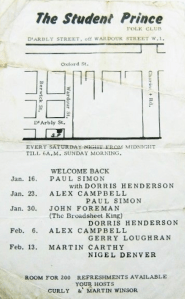 The Student Prince
FOLK CLUB
D'ARBLY STREET, off WARDOUR STREET W.1.
Oxford St.
Berwick St.
Wardour
Charing X Rd.
D'Arbly St.
EVERY SATURDAY NIGHT FROM MIDNIGHT
TILL 6A.M. SUNDAY MORNING.
WELCOME BACK
Jan. 16. PAUL SIMON
with DORRIS HENDERSON
Jan. 23. ALEX CAMPBELL
PAUL SIMON
Jan. 30. JOHN FOREMAN
(The Broadsheet King)
DORRIS HENDERSON
Feb. 6. ALEX CAMPBELL
GERRY LOUGHRAN
Feb. 13. MARTIN CARTHY
NIGEL DENVER
ROOM FOR 200 REFRESHMENTS AVAILABLE
YOUR HOSTS
CURLY & MARTIN WINSOR